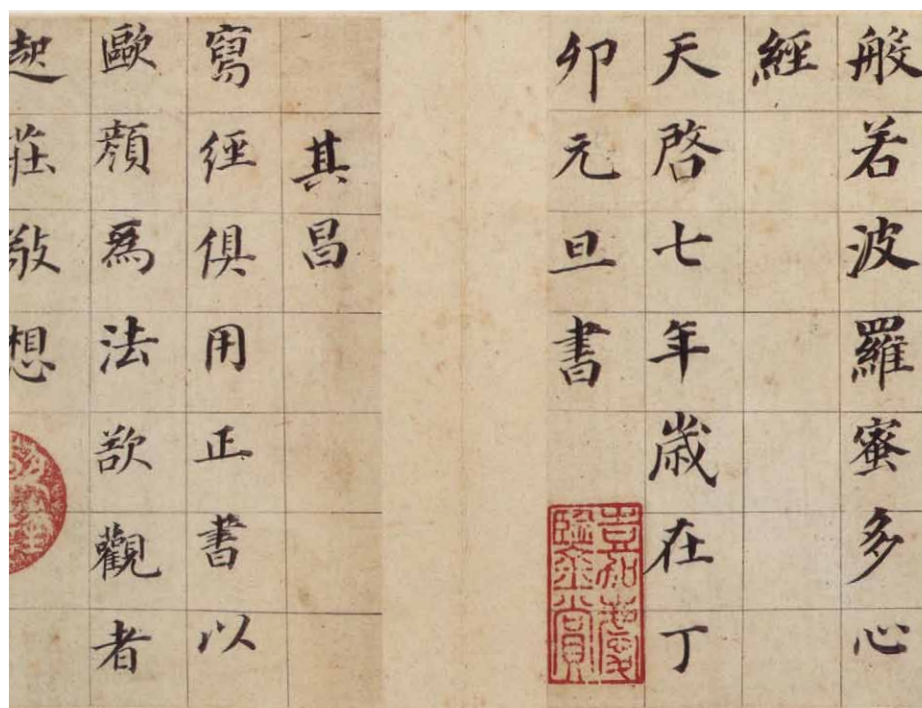 般若波羅蜜多心
經
天啓七年歲在丁
卯元旦書
其昌
寫經俱用正書以
歐顏為法欲觀者
起莊敬想